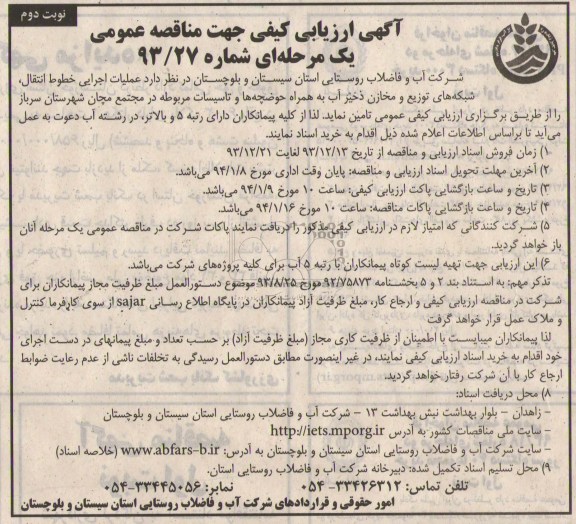 نوبت دوم
آگهی ارزیابی کیفی جهت مناقصه عمومی
یک مرحله‌ای شماره ۹۳/۲۷
شرکت آب و فاضلاب روستایی استان سیستان و بلوچستان در نظر دارد عملیات اجرایی خطوط انتقال،
شبکه‌های توزیع و مخازن ذخیر آب به همراه حوضچه‌ها و تاسیسات مربوطه در مجتمع مچان شهرستان سرباز
را از طریق برگزاری ارزیابی کیفی عمومی تامین نماید. لذا از کلیه پیمانکاران دارای رتبه ۵ و بالاتر، در رشته آب دعوت به عمل
می‌آید تا براساس اطلاعات اعلام شده ذیل اقدام به خرید اسناد نمایند.
۱) زمان فروش اسناد ارزیابی و مناقصه از تاریخ ۹۳/۱۲/۱۳ لغایت ۹۳/۱۲/۲۱
۲) آخرین مهلت تحویل اسناد ارزیابی و مناقصه: پایان وقت اداری مورخ ۹۴/۱/۸ می‌باشد.
۳) تاریخ و ساعت بازگشایی پاکت ارزیابی کیفی: ساعت ۱۰ مورخ ۹۴/۱/۹ می‌باشد.
۴) تاریخ و ساعت بازگشایی پاکات مناقصه: ساعت ۱۰ مورخ ۹۴/۱/۱۶ می‌باشد.
۵) شرکت کنندگانی که امتیاز لازم در ارزیابی کیفی مذکور را دریافت نمایند پاکات شرکت در مناقصه عمومی یک مرحله آنان
باز خواهد گردید.
۶) این ارزیابی جهت تهیه لیست کوتاه پیمانکاران با رتبه ۵ آب برای کلیه پروژه‌های شرکت می‌باشد.
تذکر مهم: به استناد بند ۲ و ۵ بخشنامه ۹۳/۷۵۸۷۳ مورخ ۹۳/۸/۲۵ موضوع دستورالعمل مبلغ ظرفیت مجاز پیمانکاران برای
شرکت در مناقصه ارزیابی کیفی و ارجاع کار، مبلغ ظرفیت آزاد پیمانکاران در پایگاه اطلاع رسانی sajar از سوی کارفرما کنترل
و ملاک عمل قرار خواهد گرفت
لذا پیمانکاران میبایست با اطمینان از ظرفیت کاری مجاز (مبلغ ظرفیت آزاد) بر حسب تعداد و مبلغ پیمانهای در دست اجرای
خود اقدام به خرید اسناد ارزیابی کیفی نمایند، در غیر اینصورت مطابق دستورالعمل رسیدگی به تخلفات ناشی از عدم رعایت ضوابط
ارجاع کار با آن شرکت رفتار خواهد گردید.
۸) محل دریافت اسناد:
- زاهدان - بلوار بهداشت نبش بهداشت ۱۳ - شرکت آب و فاضلاب روستایی استان سیستان و بلوچستان
- سایت ملی مناقصات کشور به آدرس http://iets.mporg.ir
- سایت شرکت آب و فاضلاب روستایی استان سیستان و بلوچستان به آدرس: www.abfars-b.ir (خلاصه اسناد)
۹) محل تسلیم اسناد تکمیل شده: دبیرخانه شرکت آب و فاضلاب روستایی استان.
تلفن تماس: ۳۳۴۲۶۳۱۲-۰۵۴ نمابر: ۳۳۴۴۵۰۵۶-۰۵۴
امور حقوقی و قراردادهای شرکت آب و فاضلاب روستایی استان سیستان و بلوچستان